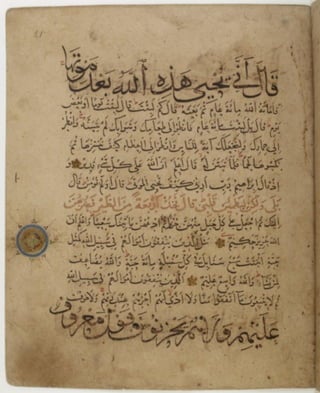 قال أنى يحيي هذه الله بعد موتها
فأماته الله مائة عام ثم بعثه قال كم لبثت قال لبثت يوما أو بعض
يوم قال بل لبثت مائة عام فانظر إلى طعامك وشرابك لم يتسنه وانظر
إلى حمارك ولنجعلك آية للناس وانظر إلى العظام كيف ننشزها ثم
نكسوها لحما فلما تبين له قال أعلم أن الله على كل شيء قدير و
إذ قال إبراهيم رب أرني كيف تحيي الموتى قال أولم تؤمن قال
بلى ولكن ليطمئن قلبي قال فخذ أربعة من الطير فصرهن
إليك ثم اجعل على كل جبل منهن جزءا ثم ادعهن يأتينك سعيا واعلم أن
الله عزيز حكيم مثل الذين ينفقون أموالهم في سبيل الله كمثل
حبة أنبتت سبع سنابل في كل سنبلة مائة حبة والله يضاعف
لمن يشاء والله واسع عليم الذين ينفقون أموالهم في سبيل الله
ثم لا يتبعون ما أنفقوا منا ولا أذى لهم أجرهم عند ربهم ولا خوف
عليهم ولا هم يحزنون قول معروف